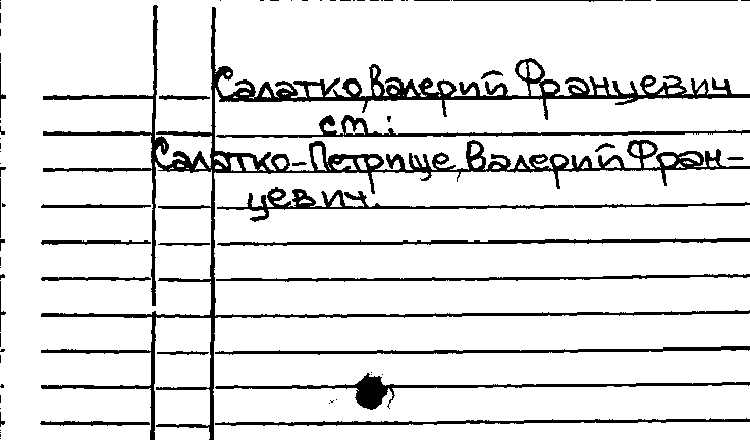 Салатко, Валерий Францевич
см.:
Салатко-Петрище, Валерий Фран-
цевич.